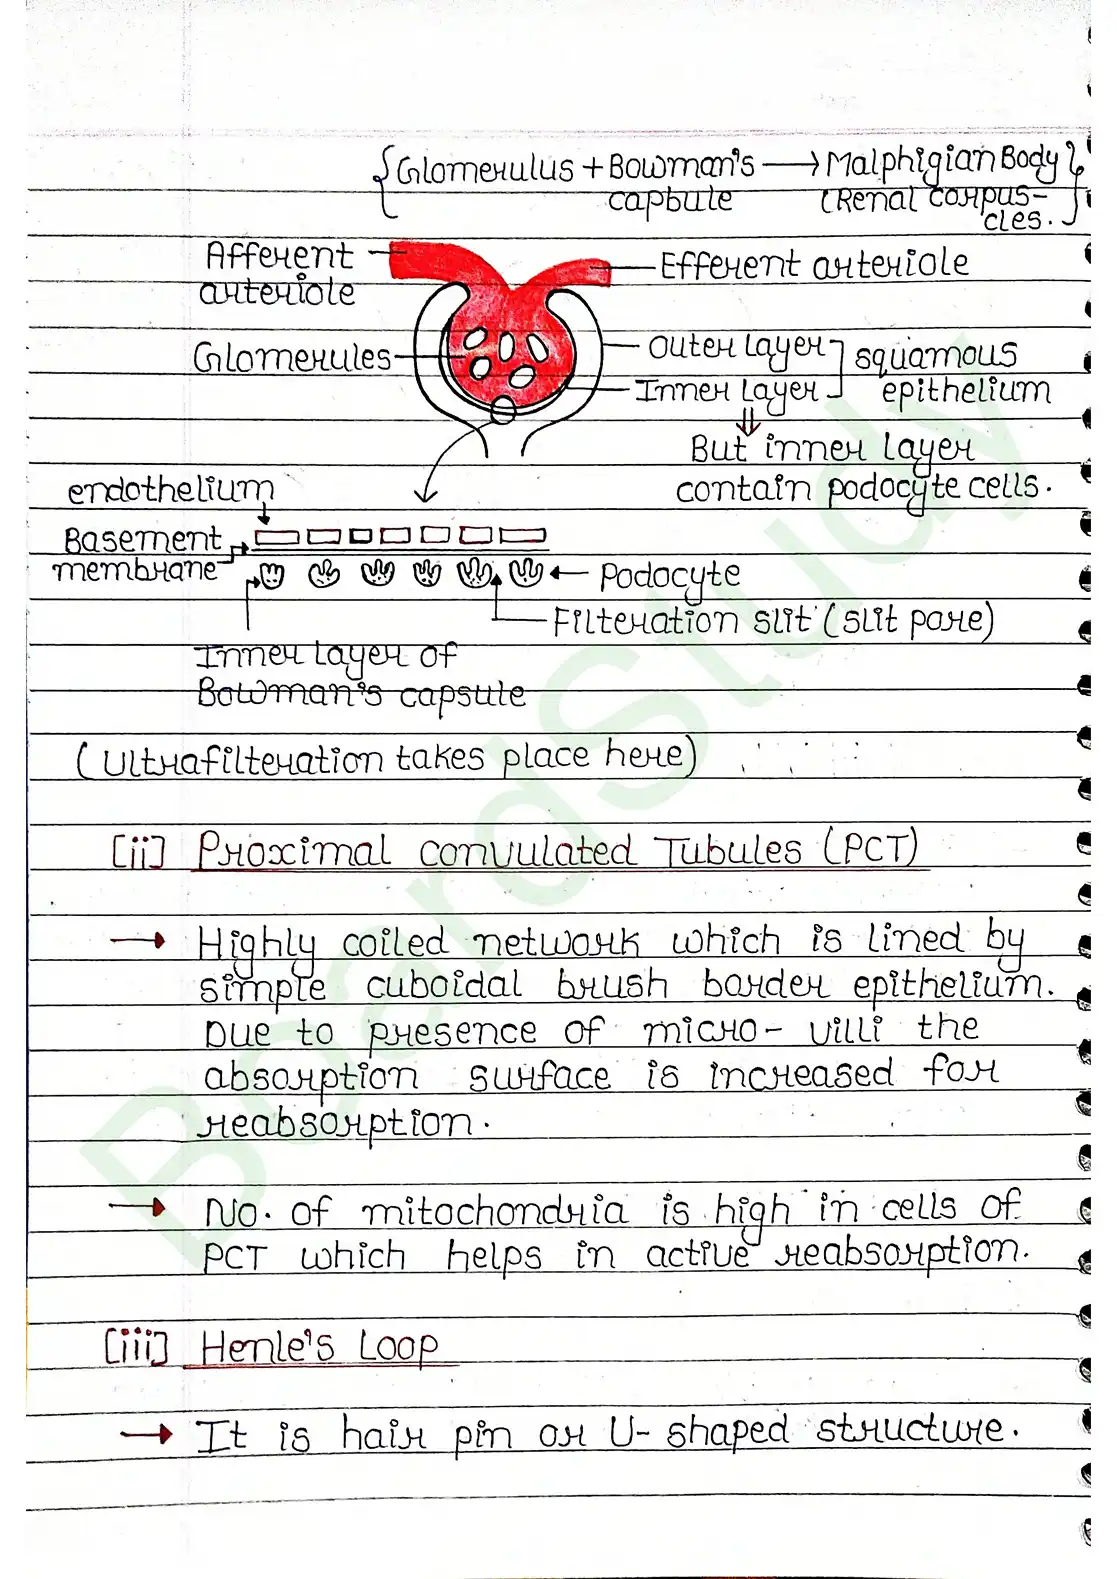 {Glomerulus + Bowman's → Malphigian Body}
capbule (Renal corpus-
cles.
Afferent
arteriole
Efferent arteriole
Glomerules
Outer Layer
Inner Layer
squamous
epithelium
But inner layer
contain podocyte cells.
endothelium
Basement
membrane
Podocyte
Filteration slit (slit pore)
Inner Layer of
Bowman's capsule
(Ultrafilteration takes place here)
[ii] Proximal convulated Tubules (PCT)
→ Highly coiled network which is lined by
simple cuboidal brush border epithelium.
Due to presence of micro- villi the
absorption surface is increased for
reabsorption.
→ No. of mitochondria is high in cells of
PCT which helps in active reabsorption.
[iii] Henle's Loop
→ It is hair pin or U- shaped structure.
BoardStudy